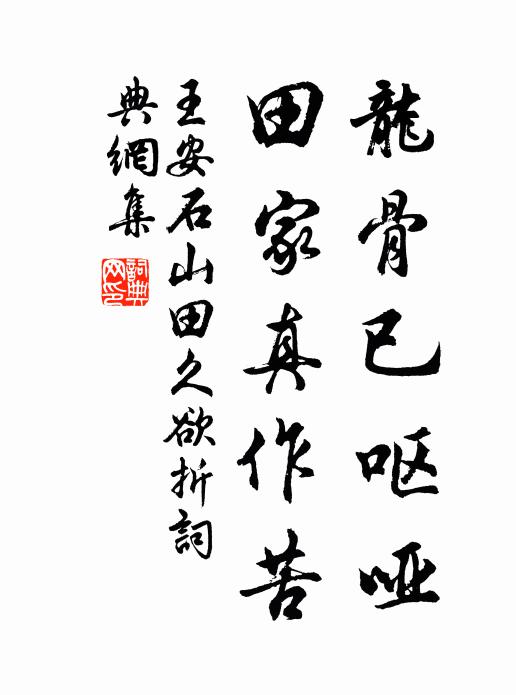 龍骨已呕哑
田家真作苦
王安石山田久欲折詞
典網集
詞典网印